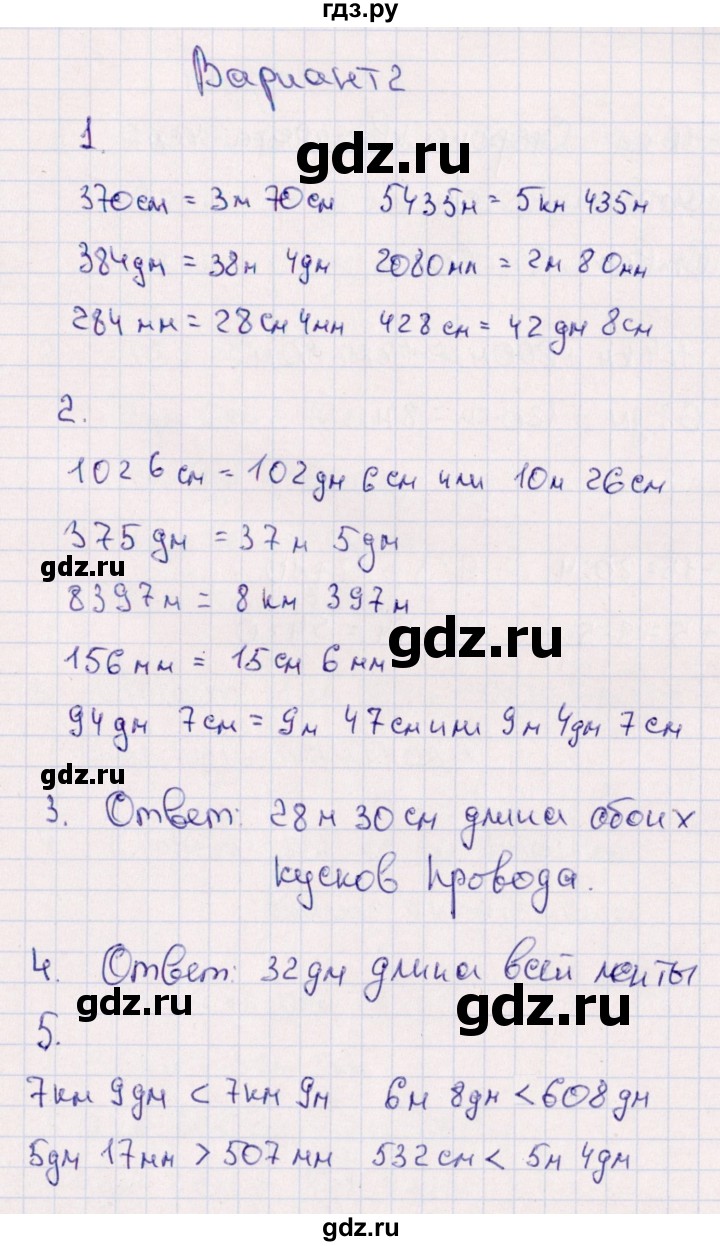 гдз.ру
Вариант 2
1.
gdz.ru
370см = 3м 70см 5435м = 5км 435м
384дм = 38м 4дм 2080мм = 2м 80мм
284мм = 28см 4мм 428см = 42дм 8см
2.
1026см = 102дм 6см или 10м 26см
375дм = 37м 5дм
gdz.ru
8397м = 8км 397м
gdz.ru
156мм = 15см 6мм
94дм 7см = 9м 47см или 9м 4дм 7см
gdz.ru
3. Ответ: 28м 30см длина обоих
кусков провода.
4. Ответ: 32дм длина всей ленты
gdz.ru
gdz.ru
5.
7км 9дм < 7км 9м 6м 8дм < 608дм
5дм 17мм > 507мм 532см < 5м 4дм
gdz.ru